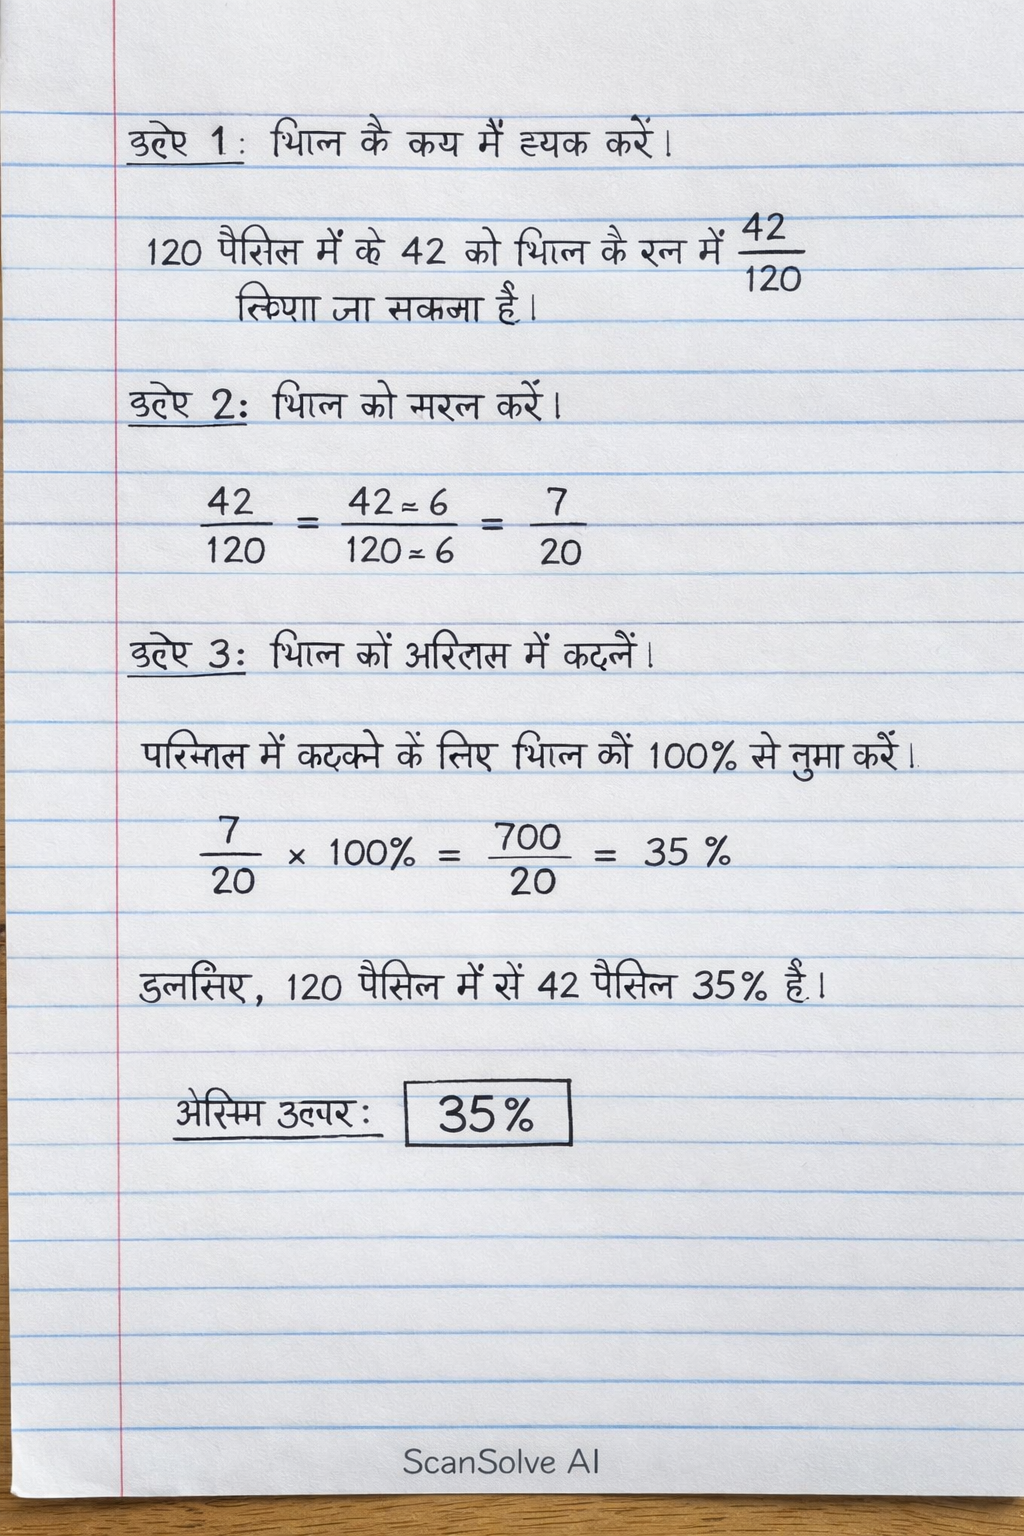 उल्ऐ 1: भिाल कै कय मैं ह्यक करें।
120 पैसिल में के 42 को भिाल कै रल में 42/120
किाा जा सकजा है।
उल्ऐ 2: भिाल को मरल करें।
42/120 = 42≈6/120≈6 = 7/20
उल्ऐ 3: भिाल कों अरिलास में कदलैं।
परिमाल में कदक्ने कें लिए भिाल कौं 100% से नुमा करें।
7/20 × 100% = 700/20 = 35 %
डलसिंए, 120 पैसिल में सें 42 पैसिल 35% है।
अेसिम उल्वर: 35%
ScanSolve AI